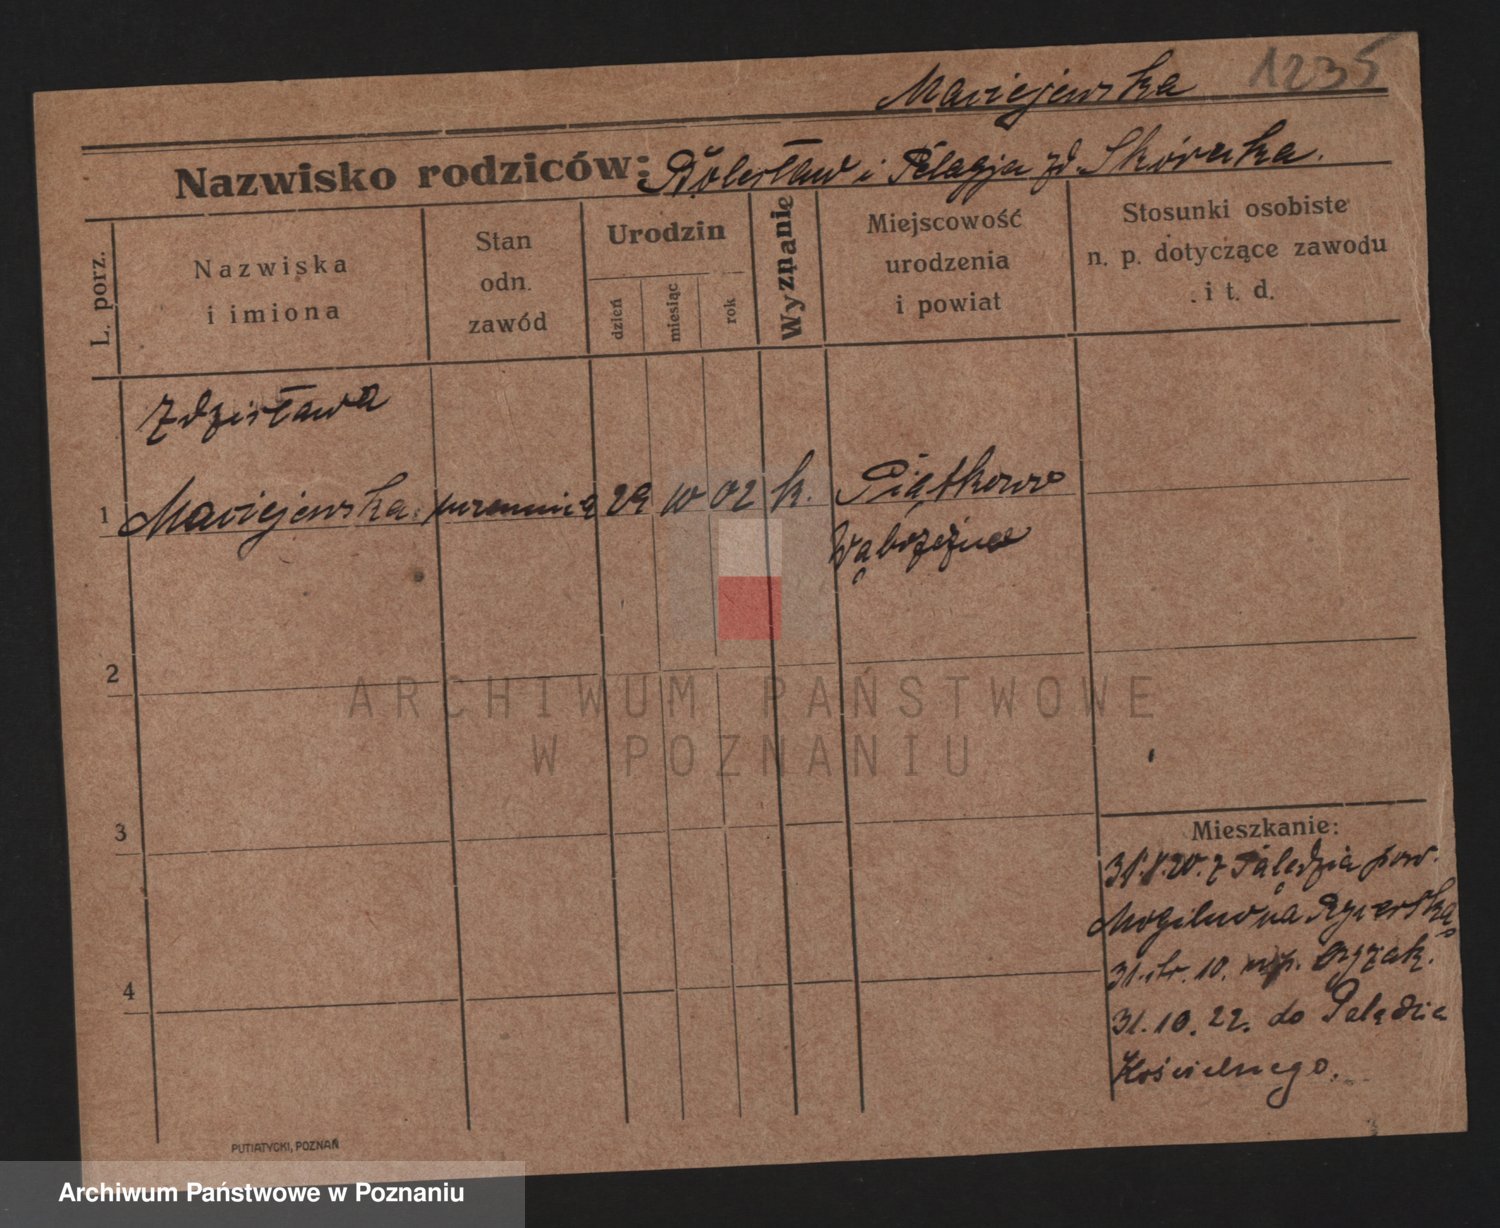 Maciejewska 1235
Nazwisko rodziców: Bolesław i Pelagja zd. Skórcka.
L. porz.
Nazwiska
i imiona
Stan
odn.
zawód
Urodzin
dzień
miesiąc
rok
Wyznanie
Miejscowość
urodzenia
i powiat
Stosunki osobiste
n. p. dotyczące zawodu
i t. d.
Zdzisława
1 Maciejewska uczennica 29 10 02 k. Piątkowo
Wąbrzeźno
2
ARCHIWUM PAŃSTWOWE
W POZNANIU
3
4
Mieszkanie:
31. 20. z Palędzia pow.
Mogilno na
31. 10.
31.10.22. do Palędzia
Kościelnego.
PUTIATYCKI, POZNAŃ
Archiwum Państwowe w Poznaniu